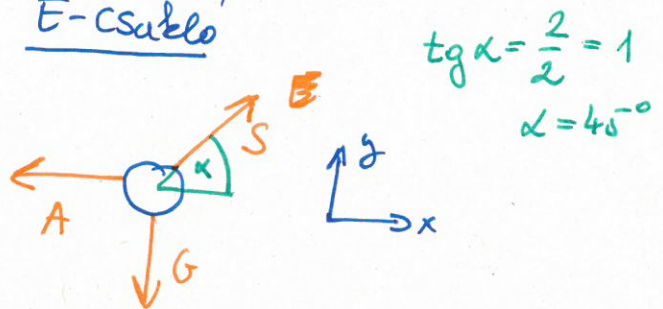 E-csukló
tg α = 2/2 = 1
α = 45°
S
α
A
G
y
x